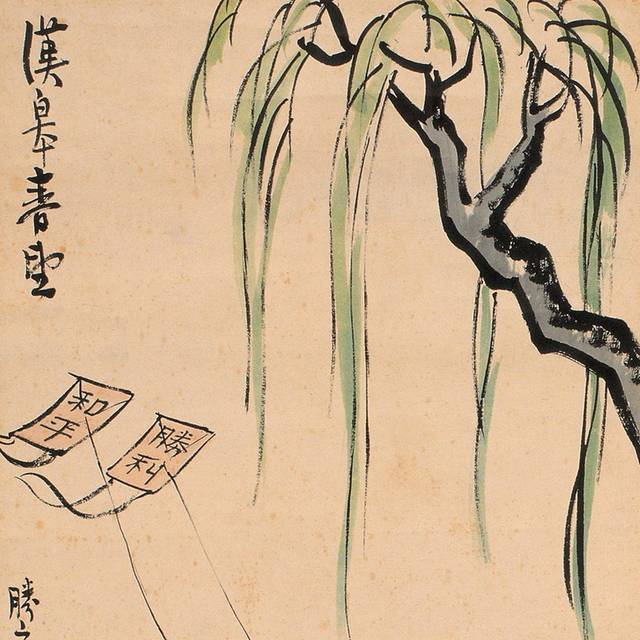 漢皋春望
和平
勝利
勝